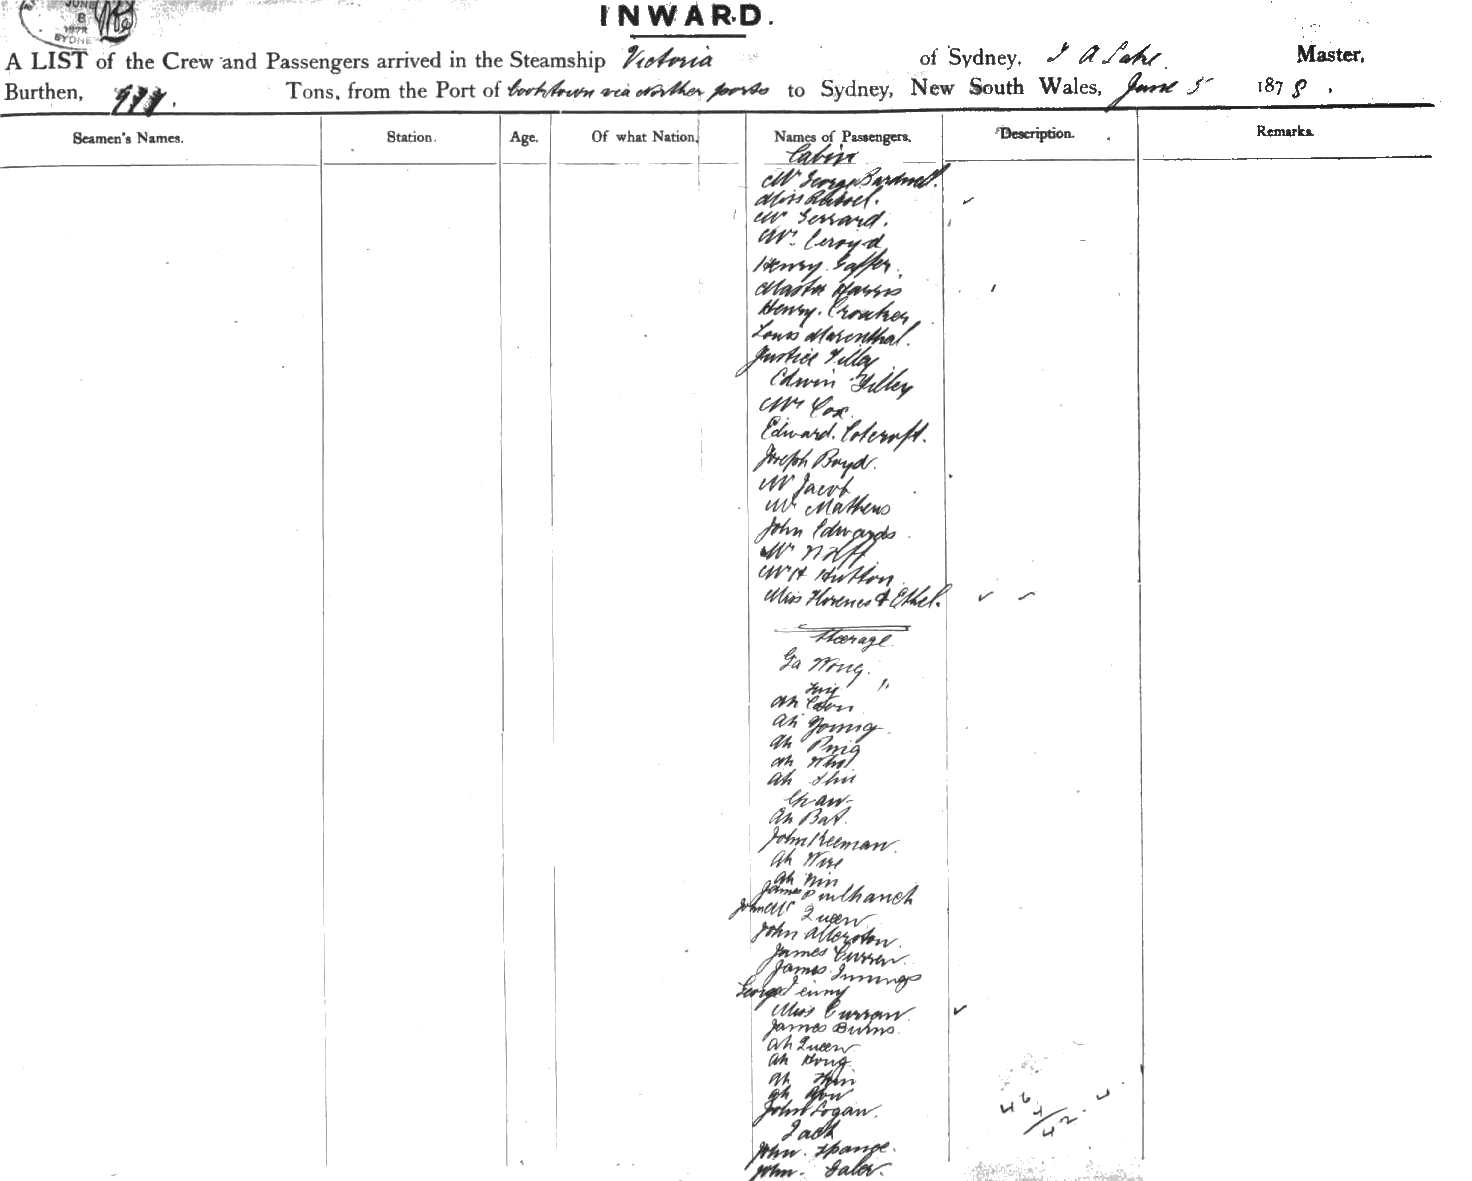 JUNE
8
1878
SYDNE
INWARD.
A LIST of the Crew and Passengers arrived in the Steamship Victoria of Sydney, Master,
Burthen, Tons, from the Port of Cooktown via Norther ports to Sydney, New South Wales, June 5 1878.
Seamen's Names. Station. Age. Of what Nation. Names of Passengers. Description. Remarks.
Cabin
Mr George Bardwell.
Miss
Mr Gerrard.
Mr. Ceroyd
Henry Gaffer.
Master Harris
Henry. Croaker
Louis Marenthal.
Justice Filley
Edwin Filley
Mr Cox.
Edward. Colcroft.
Joseph Boyd.
Mr Jacob
Mr Mathews
John Edwards
Mr Wolff
Mr H Hutton
Miss Florence & Ethel.
Steerage
Ga Wong.
"
Ah
Ah Young
Ah Ping
Ah
Ah Shu
Chaw
Ah Bat.
John Keeman.
Ah Wire
Ah Nin
James
John Mc Queen
John Allerston.
James Curren.
James Innings
George
Miss Curran
James Burns.
Ah Queen
Ah Hong
Ah
Ah You
John Logan.
Jack
John. Spange.
John. Galer.
46
4
42.